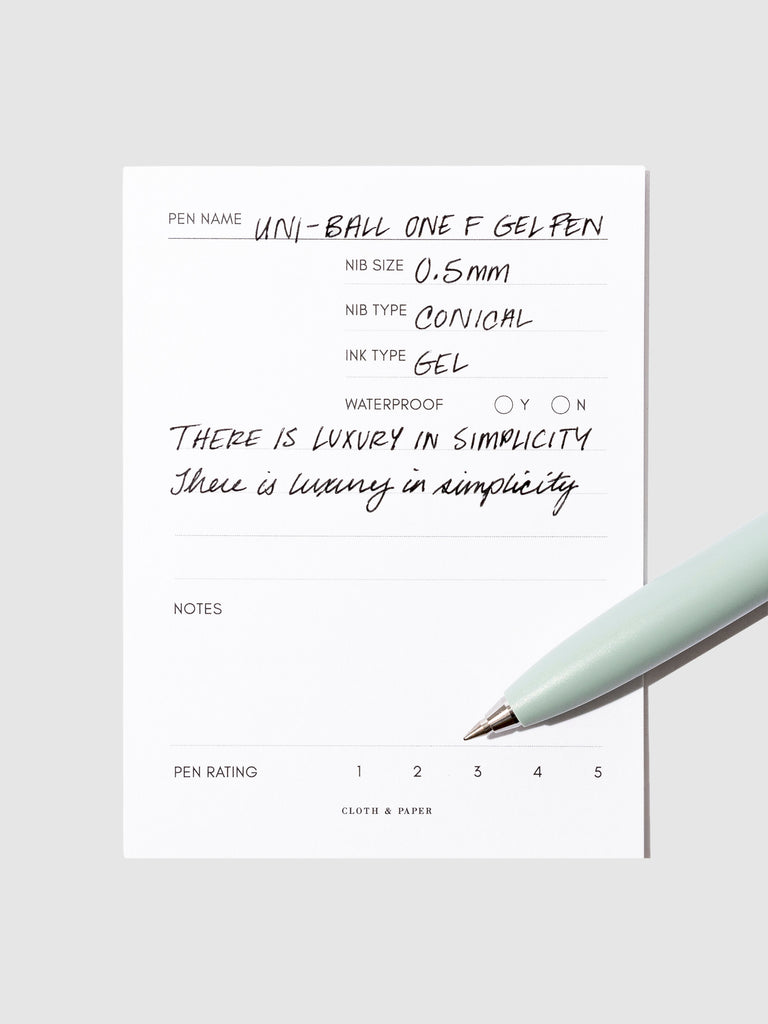 PEN NAME UNI-BALL ONE F GEL PEN
NIB SIZE 0.5mm
NIB TYPE CONICAL
INK TYPE GEL
WATERPROOF Y N
THERE IS LUXURY IN SIMPLICITY
There is luxury in simplicity
NOTES
PEN RATING 1 2 3 4 5
CLOTH & PAPER